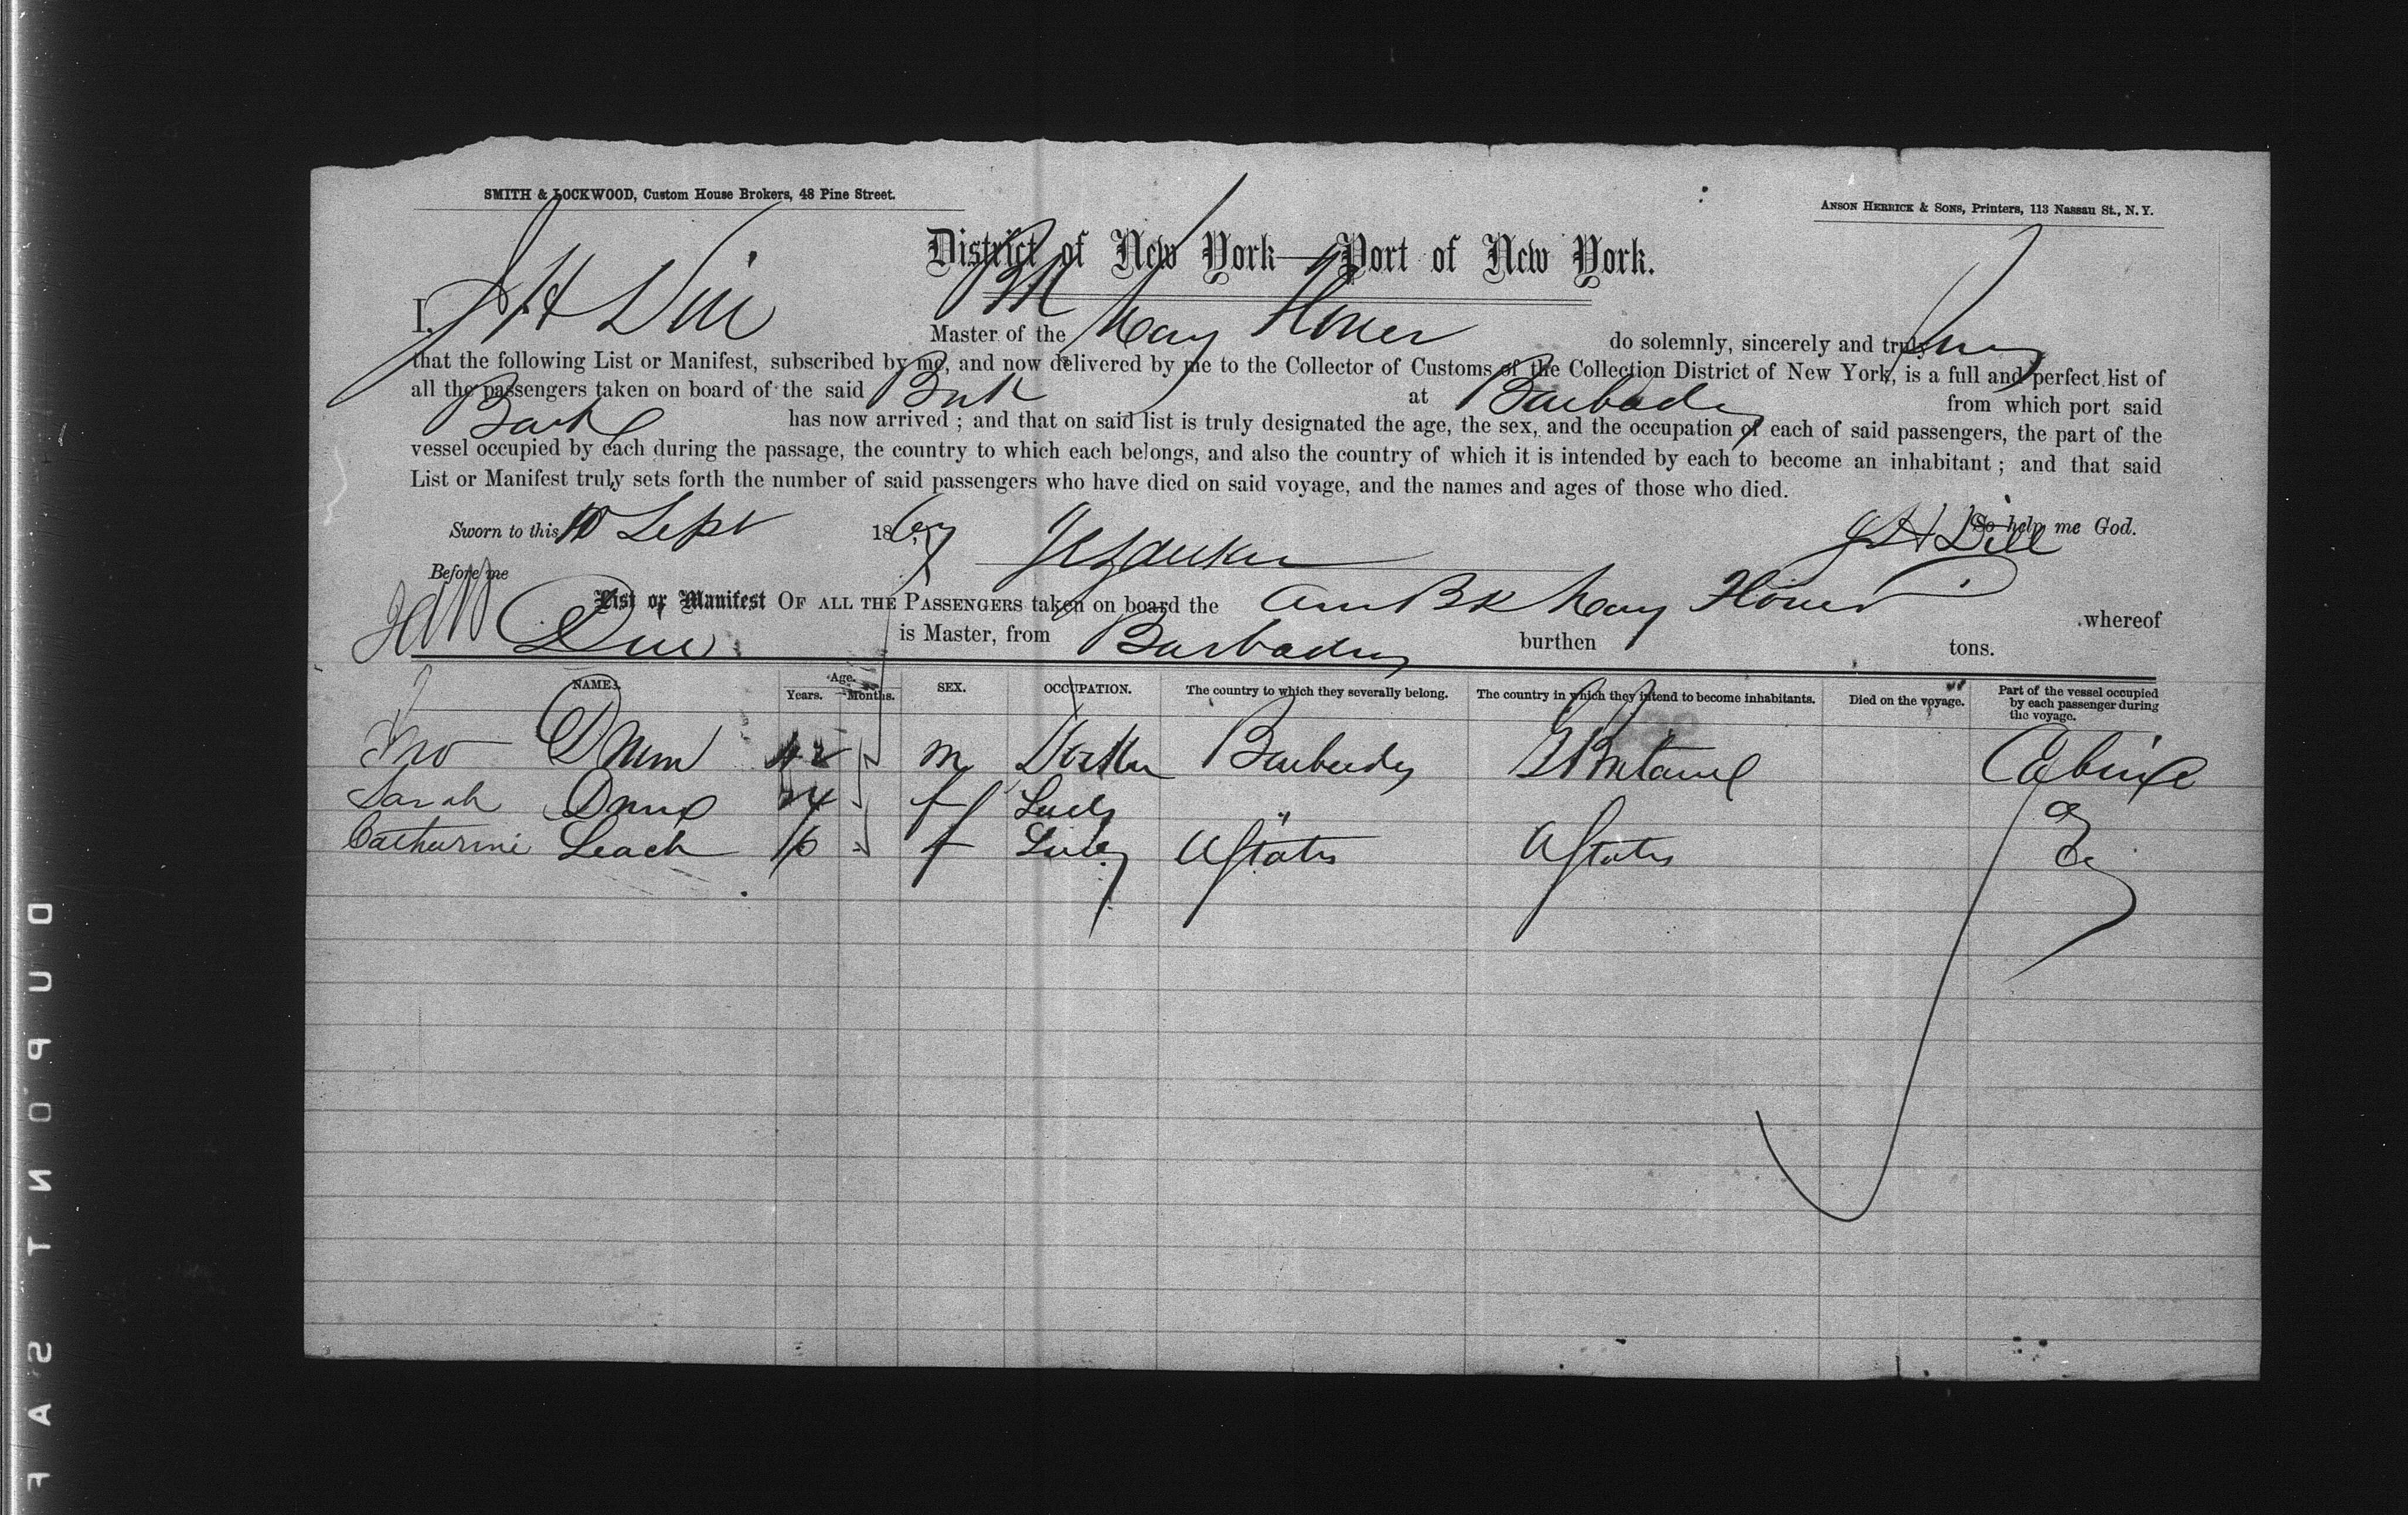 SMITH & LOCKWOOD, Custom House Brokers, 48 Pine Street.
ANSON HERRICK & SONS, Printers, 113 Nassau St., N. Y.
District of New York—Port of New York.
I, J H Dill Master of the Bk Mary do solemnly, sincerely and truly Swear
that the following List or Manifest, subscribed by me, and now delivered by me to the Collector of Customs of the Collection District of New York, is a full and perfect list of
all the passengers taken on board of the said Bark at Barbados from which port said
Bark has now arrived ; and that on said list is truly designated the age, the sex, and the occupation of each of said passengers, the part of the
vessel occupied by each during the passage, the country to which each belongs, and also the country of which it is intended by each to become an inhabitant ; and that said
List or Manifest truly sets forth the number of said passengers who have died on said voyage, and the names and ages of those who died.
Sworn to this 10 Sept 1867 So help me God.
J H Dill
Before me
List or Manifest OF ALL THE PASSENGERS taken on board the Am Bk Mary whereof
Dill is Master, from Barbados burthen tons.
NAMES. Age. Years. Months. SEX. OCCUPATION. The country to which they severally belong. The country in which they intend to become inhabitants. Died on the voyage. Part of the vessel occupied by each passenger during the voyage.
Jno 42 m Barbados Gt Britain Cabin
Sarah 24 f Lady "
Catharine Leach 16 f Lady U States U States
DUPONT SAF